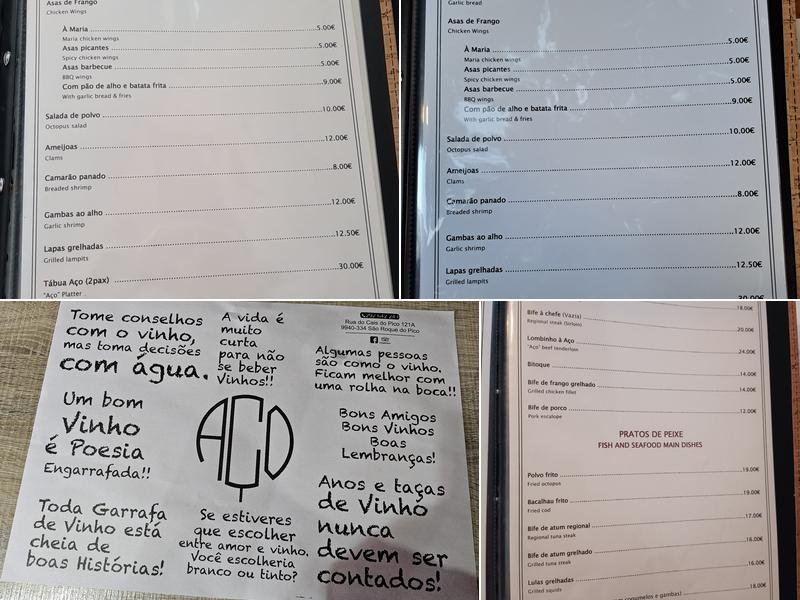 Asas de Frango
Chicken Wings
À Maria 5.00€
Maria chicken wings
Asas picantes 5.00€
Spicy chicken wings
Asas barbecue 5.00€
BBQ wings
Com pão de alho e batata frita 9.00€
With garlic bread & fries
Salada de polvo 10.00€
Octopus salad
Ameijoas 12.00€
Clams
Camarão panado 8.00€
Breaded shrimp
Gambas ao alho 12.00€
Garlic shrimp
Lapas grelhadas 12.50€
Grilled lampits
Tábua Aço (2pax) 30.00€
"Aço" Platter
Garlic bread
Asas de Frango
Chicken Wings
À Maria 5.00€
Maria chicken wings
Asas picantes 5.00€
Spicy chicken wings
Asas barbecue 5.00€
BBQ wings
Com pão de alho e batata frita 9.00€
With garlic bread & fries
Salada de polvo 10.00€
Octopus salad
Ameijoas 12.00€
Clams
Camarão panado 8.00€
Breaded shrimp
Gambas ao alho 12.00€
Garlic shrimp
Lapas grelhadas 12.50€
Grilled lampits
30.00€
Tome conselhos
com o vinho,
mas toma decisões
com água.
A vida é
muito
curta
para não
se beber
Vinhos!!
Rua do Cais do Pico 121A
9940-334 São Roque do Pico
Algumas pessoas
são como o vinho.
Ficam melhor com
uma rolha na boca!!
Um bom
Vinho
é Poesia
Engarrafada!!
AÇO
Bons Amigos
Bons Vinhos
Boas
Lembranças!
Toda Garrafa
de Vinho está
cheia de
boas Histórias!
Se estiveres
que escolher
entre amor e vinho.
Você escolheria
branco ou tinto?
Anos e taças
de Vinho
nunca
devem ser
contados!
18.00€
Bife à chefe (Vazia)
Regional steak (Sirloin)
20.00€
Lombinho à Aço
"Aço" beef tenderloin
24.00€
Bitoque
14.00€
Bife de frango grelhado
Grilled chicken fillet
14.00€
Bife de porco
Pork escalope
12.00€
PRATOS DE PEIXE
FISH AND SEAFOOD MAIN DISHES
Polvo frito 19.00€
Fried octopus
Bacalhau frito 19.00€
Fried cod
Bife de atum regional 17.00€
Regional tuna steak
Bife de atum grelhado 16.00€
Grilled tuna steak
Lulas grelhadas 16.00€
Grilled squids
cogumelos e gambas) 18.00€